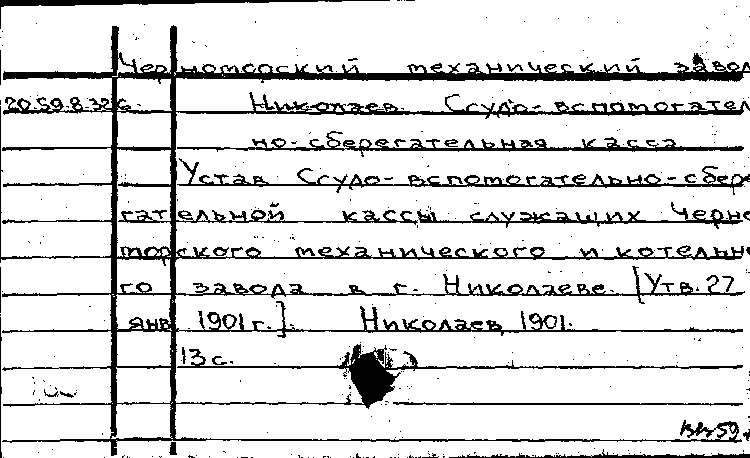 Черноморский механический завод
20.59.8.326. Николаев. Ссудо-вспомогатель
но-сберегательная касса
Устав Ссудо-вспомогательно-сбере
гательной кассы служащих Черно
морского механического и котельно
го завода в г. Николаеве. [Утв. 27
янв 1901 г.]. Николаев, 1901.
13 с.